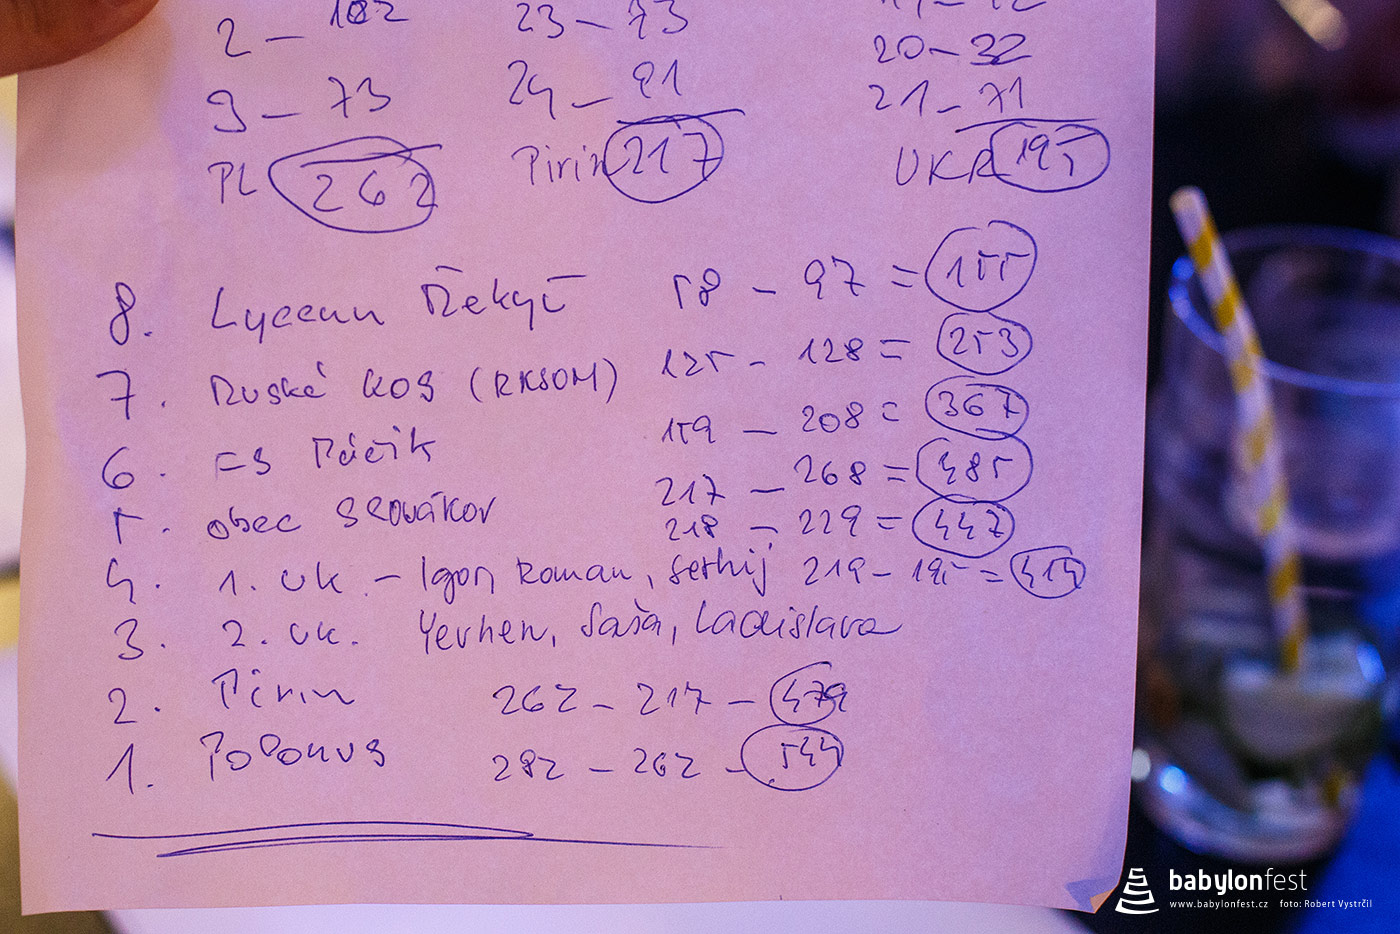 2 - 182 23 - 73
20 - 32
9 - 73 24 - 91 21 - 71
PL 262 Pirin 217 UKR 195
8. Lyceum Řekyě 58 - 97 = 155
7. Ruské KOS (RKSOM) 125 - 128 = 253
6. FS 159 - 208 = 367
5. obec Slovákov 217 - 268 = 485
218 - 229 = 447
4. 1. Uk - Igor, Roman, Serhij 219 - 195 = 414
3. 2. Uk. Yevhen, Saša, Ladislava
2. Pirin 262 - 217 - 479
1. Polonus 282 - 262 - 544
babylonfest
www.babylonfest.cz foto: Robert Vystrčil